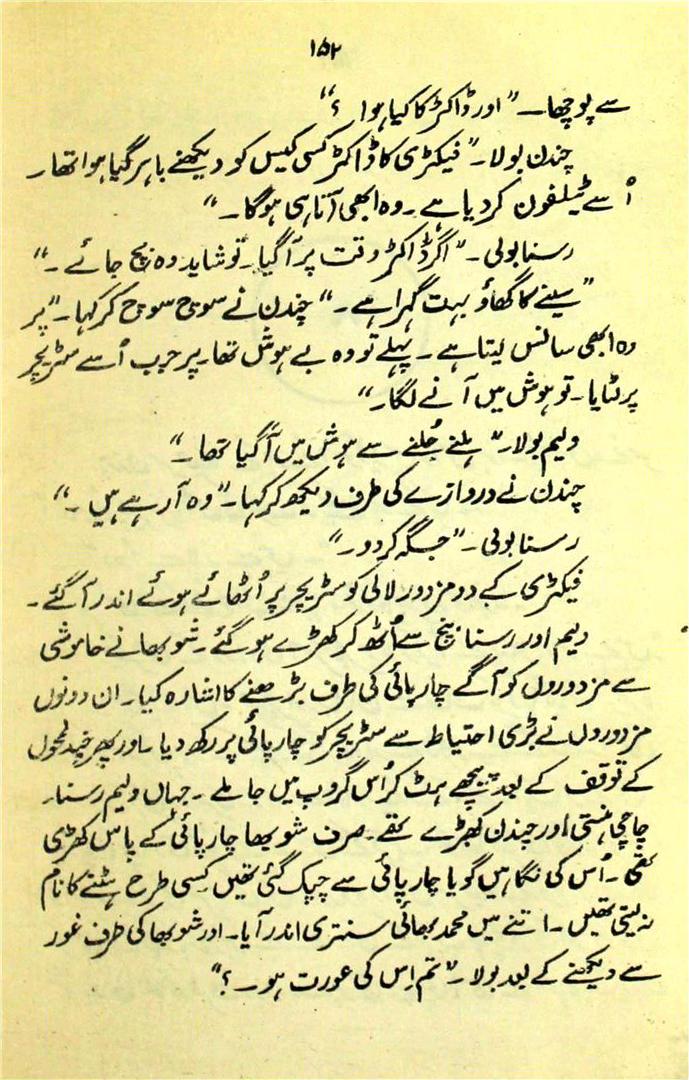 ۱۵۲
سے پوچھا۔ "اور ڈاکڑ کا کیا ہوا ؟"
چندن بولا۔ "فیکڑی کا ڈاکٹر کسی کیس کو دیکھنے باہر گیا ہوا تھا۔
اُسے ٹیلفون کر دیا ہے۔ وہ ابھی آتا ہی ہوگا۔"
رسنا بولی۔ "اگر ڈاکٹر وقت پر آگیا۔ تو شاید وہ بچ جائے۔"
"سینے کا گھاؤ بہت گہرا ہے۔" چندن نے سوچ سوچ کر کہا۔ "پر
وہ ابھی سانس لیتا ہے۔ پہلے تو وہ بے ہوش تھا۔ پر جب اُسے سٹریچر
پر لٹایا۔ تو ہوش میں آنے لگا۔"
ولیم بولا۔ "ہلنے جُلنے سے ہوش میں آگیا تھا۔"
چندن نے دروازے کی طرف دیکھ کر کہا۔ "وہ آرہے ہیں۔"
رسنا بولی۔ "جگہ کردو۔"
فیکٹری کے دو مزدور لالی کو سٹریچر پر اُٹھائے ہوئے اندر آگئے۔
ولیم اور رسنا بنچ سے اُٹھ کر کھڑے ہوگئے۔ شوبھا نے خاموشی
سے مزدوروں کو آگے چارپائی کی طرف بڑھنے کا اشارہ کیا۔ ان دونوں
مزدوروں نے بڑی احتیاط سے سٹریچر کو چارپائی پر رکھ دیا۔ اور پھر چند لمحوں
کے توقف کے بعد پیچھے ہٹ کر اُس گروپ میں جا ملے۔ جہاں ولیم رسنا۔
چاچی ہنستی اور چندن کھڑے تھے۔ صرف شوبھا چارپائی کے پاس کھڑی
تھی۔ اُس کی نگاہیں گویا چارپائی سے چپک گئی تھیں کسی طرح ہٹنے کا نام
نہ لیتی تھیں۔ اتنے میں محمد بھائی سنتری اندر آیا۔ اور شوبھا کی طرف غور
سے دیکھنے کے بعد بولا۔ "تم اِس کی عورت ہو۔؟"